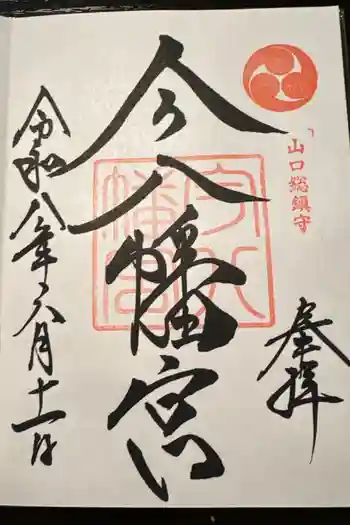 山口総鎮守
奉拝
今八幡宮
今八幡宮
令和八年六月十一日